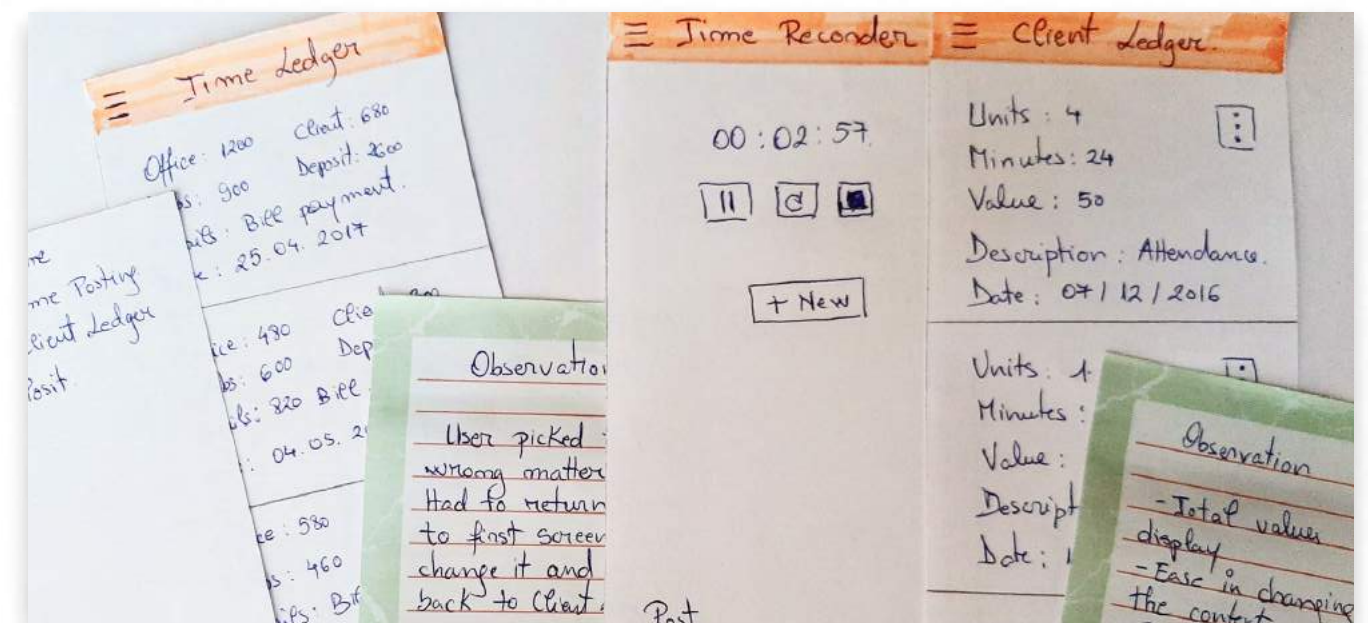 Time Ledger
Office: 1200 Client: 680
900 Deposit: 2600
Bill payment.
: 25.04.2017
me Posting
Client Ledger
posit.
480
600 Dep
: 820 Bill
: 04.05. 2
: 580
: 460
Observation
User picked
wrong matter
Had to return
to first screen
change it and
back to Client
Time Recorder
00:02:57
+ New
Post
Client Ledger.
Units: 4
Minutes: 24
Value: 50
Description: Attendance.
Date: 07/12/2016
Units: 1
Minutes:
Value:
Descript
Date:
Observation
- Total values
display
- Ease in changing
the context